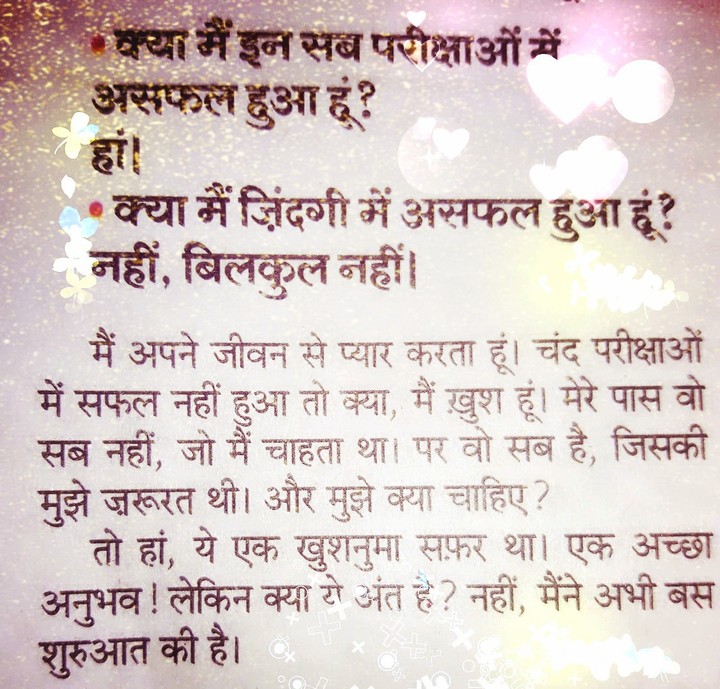 • क्या मैं इन सब परीक्षाओं में
असफल हुआ हूं?
हां।
• क्या मैं ज़िंदगी में असफल हुआ हूं?
नहीं, बिलकुल नहीं।
मैं अपने जीवन से प्यार करता हूं। चंद परीक्षाओं
में सफल नहीं हुआ तो क्या, मैं ख़ुश हूं। मेरे पास वो
सब नहीं, जो मैं चाहता था। पर वो सब है, जिसकी
मुझे ज़रूरत थी। और मुझे क्या चाहिए?
तो हां, ये एक खुशनुमा सफ़र था। एक अच्छा
अनुभव! लेकिन क्या ये अंत है? नहीं, मैंने अभी बस
शुरुआत की है।